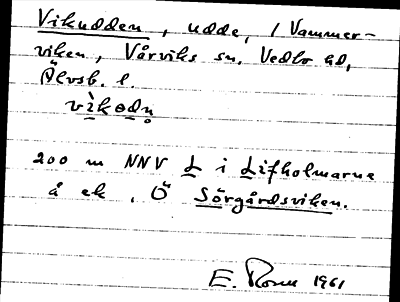 Vikudden, udde, i Vammer-
viken, Vårviks sn, Vedbo hd,
Älvsb. l.
vìkɵdn̥
200 m NNV L i Lifholmarne
å ek. Ö Sörgårdsviken.
E. 1961